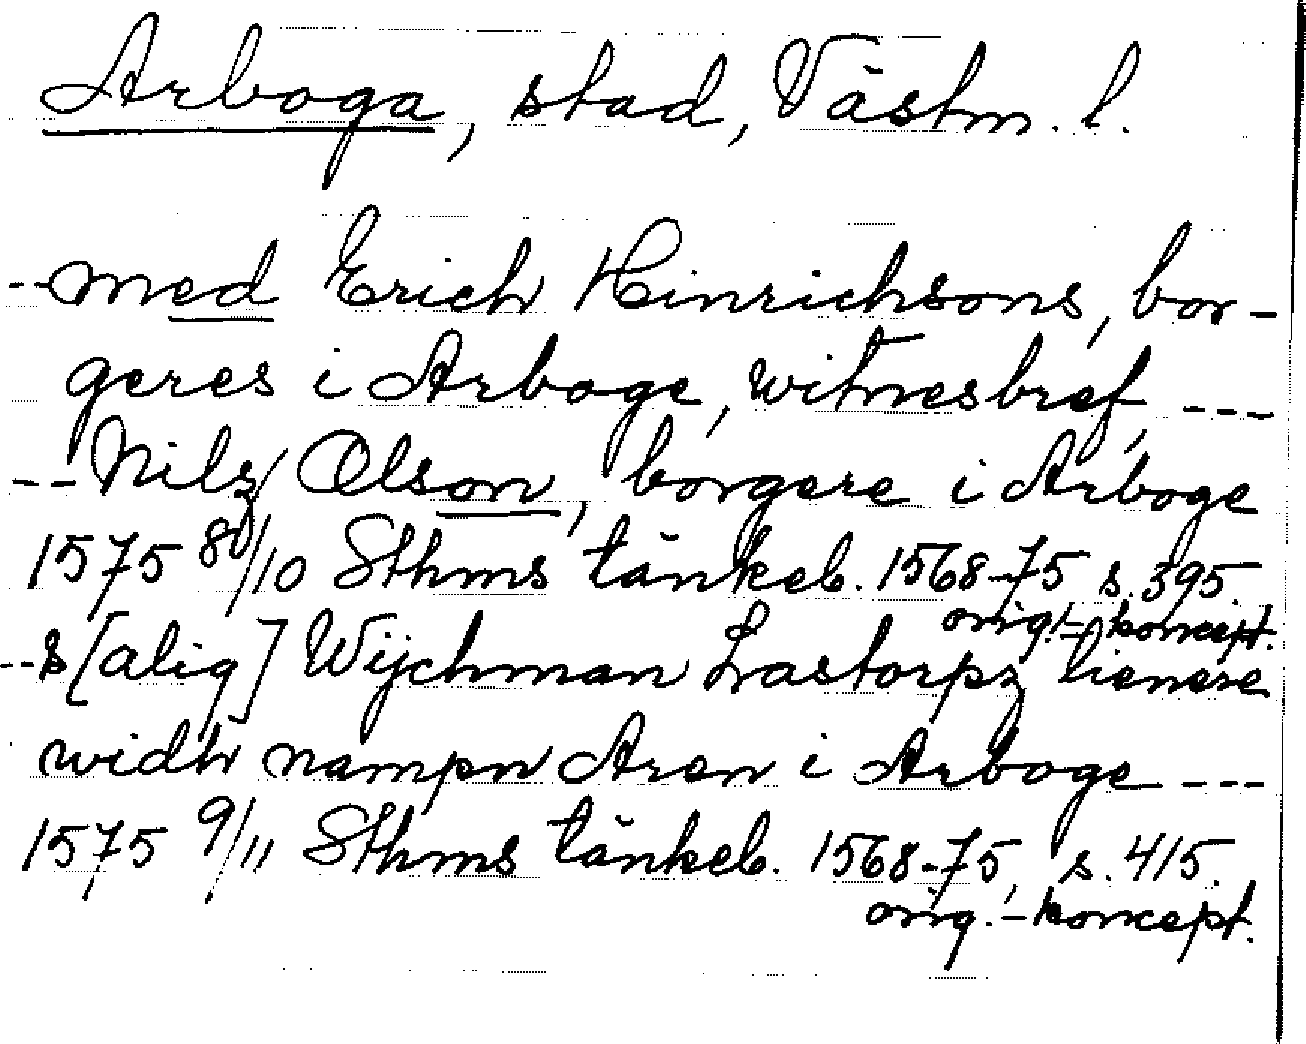 Arboga, stad, Västm. l.
--med Erich Hinrichsons, bor-
geres i Arboge, witnesbref, ---
--Nilz Olson, borgere i Arboge
1575 /10 Sthms tänkeb. 1568-75 s. 395.
orig.-koncept.
--s[alig] Wijchman Lastorpz tienere
widh nampn Aren i Arboge ---
1575 9/11 Sthms tänkeb. 1568-75, s. 415.
orig.-koncept.